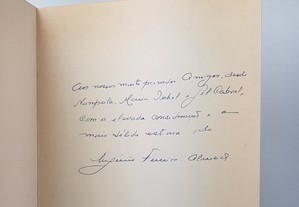 Aos nossos muito prezados Amigos, desde
Nampula, Maria Isabel e Gil Cabral,
com a elevada consideração e a
mais sólida estima, do
Eugénio Ferreira Almeida